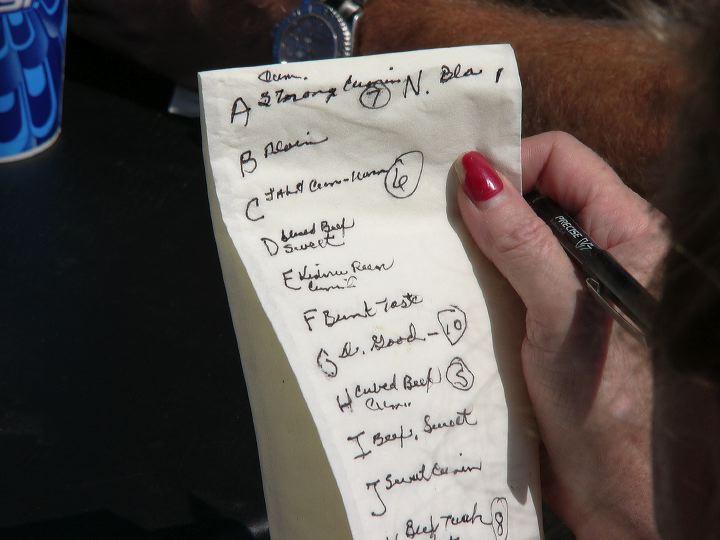 Cum.
A Strong Cumin 7 N. Bla
B Plain
C Salt Cum-Cumin 6
D Cubed Beef
Sweet
E Kidney Bean
Cumin
F Burnt Taste
G Good - 10
H Cubed Beef 5
Cumin
I Beef, Sweet
J Sweet Cumin
Beef 8
PRECISE V5